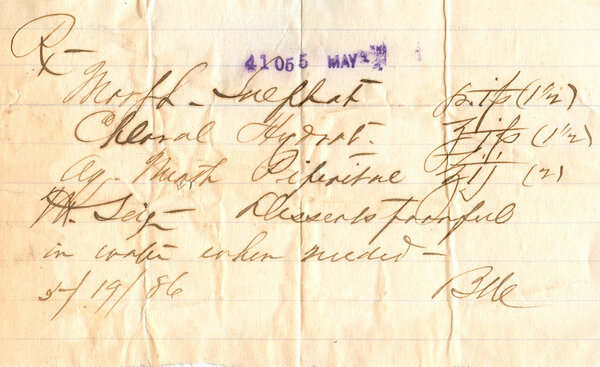 41055 MAY
Rx
Morph. Sulphat (1½)
Chloral Hydrat. (1½)
Aq. Menth Piperitae ℨij (2)
M. Sig Dessertspoonful
in water when needed
5/19/86